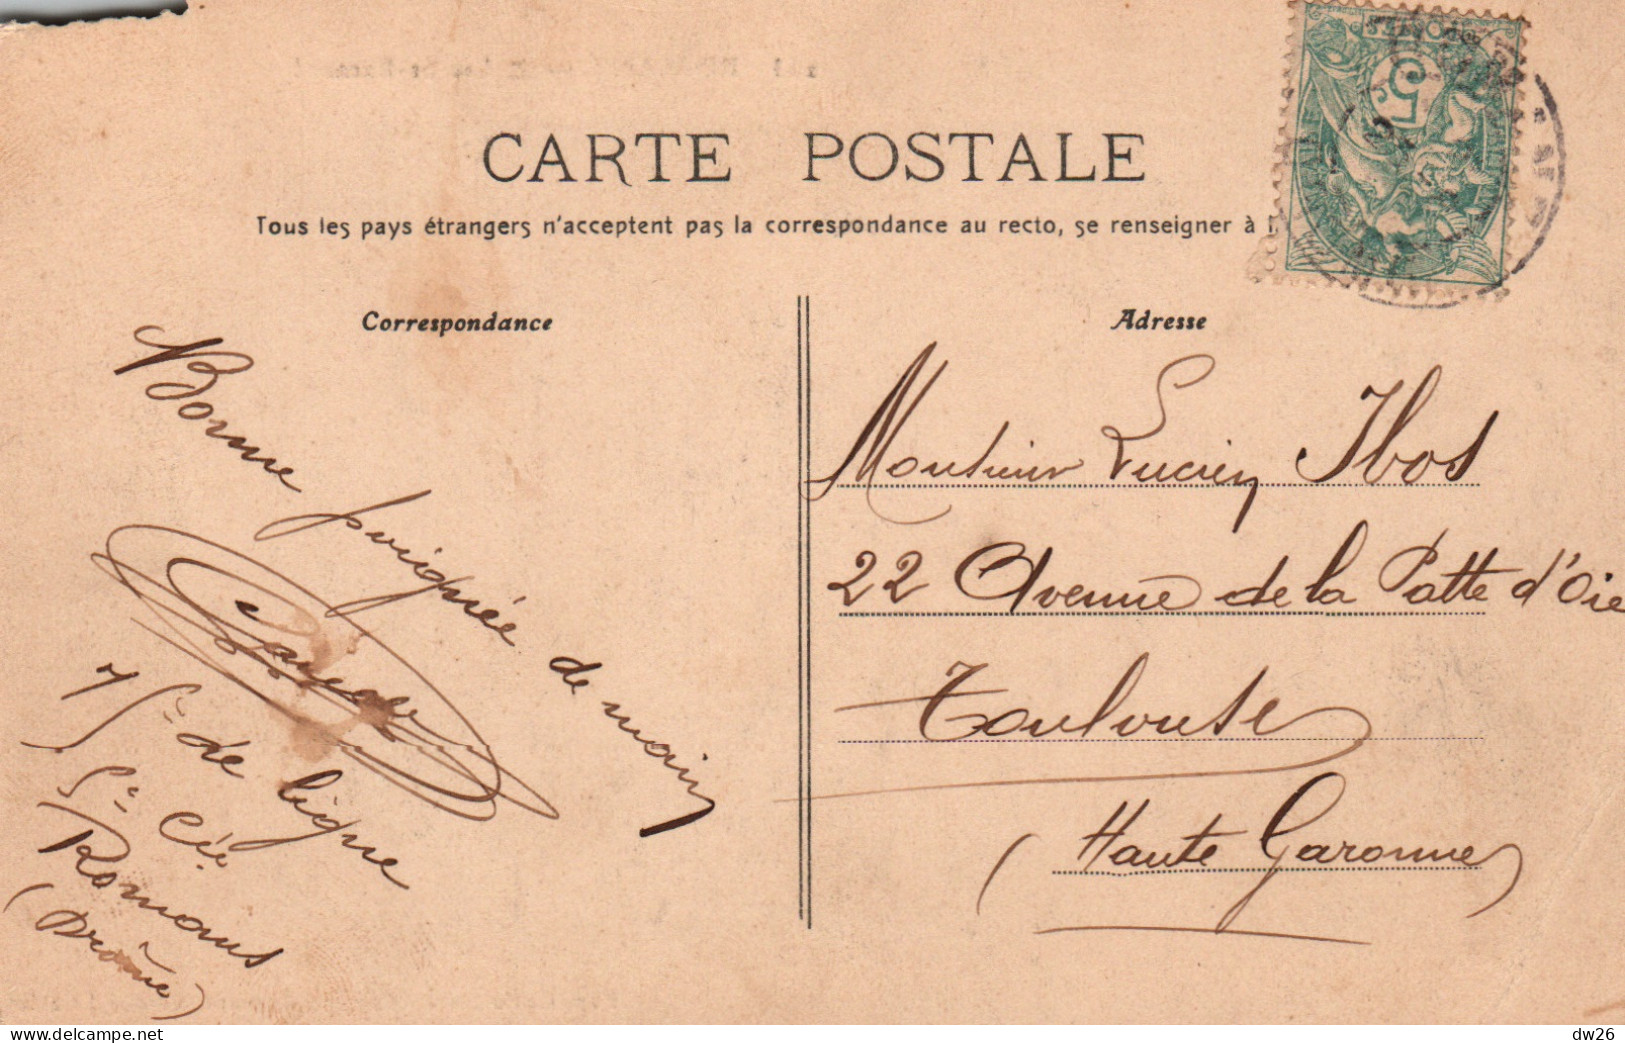 CARTE POSTALE
Tous les pays étrangers n'acceptent pas la correspondance au recto, se renseigner à
Correspondance
Adresse
Bonne poignée de main
de ligne
Cie
Romans
(Drôme)
Monsieur Lucien Ibos
22 Avenue de la Patte d'Oie
Toulouse
(Haute Garonne)
5
POSTES
www.delcampe.net
dw26